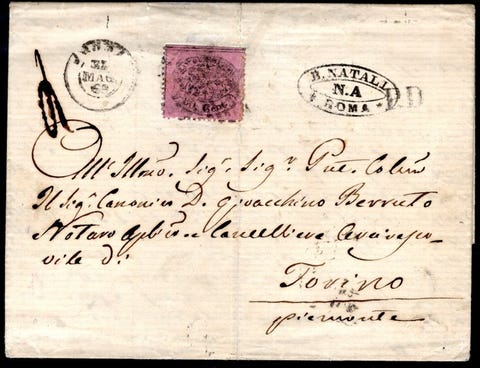 31
MAG
69
B. NATALI
N.A
ROMA
P.D
All' Illmo. Sigr. Sigr. Pne. Colmo
Il Sigr. Canonico D. Gioacchino Berruto
Notaro e Cancelliere Arcivesco-
vile di
Torino
piemonte